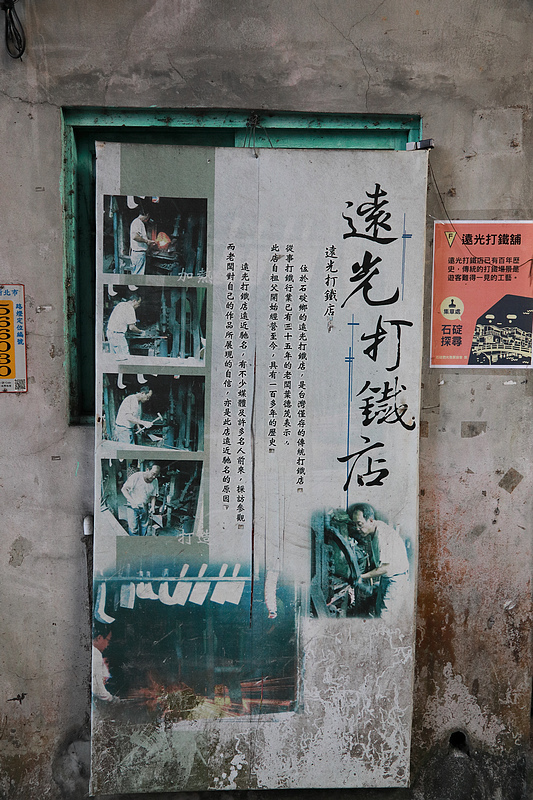 遠光打鐵店
遠光打鐵店
位於石碇鄉的遠光打鐵店，是台灣僅存的傳統打鐵店
從事打鐵行業已有三十五年的老闆葉德茂表示，
此店自祖父開始經營至今，具有一百多年的歷史
遠光打鐵店遠近馳名，有不少媒體及許多名人前來，採訪參觀
而老闆對自己的作品所展現的自信，亦是此店遠近馳名的原因。
加熱
打造
遠光打鐵舖
遠光打鐵店已有百年歷
史，傳統的打鐵場景是
遊客難得一見的工藝。
集章處
石碇
探尋
北市
路燈定位編號